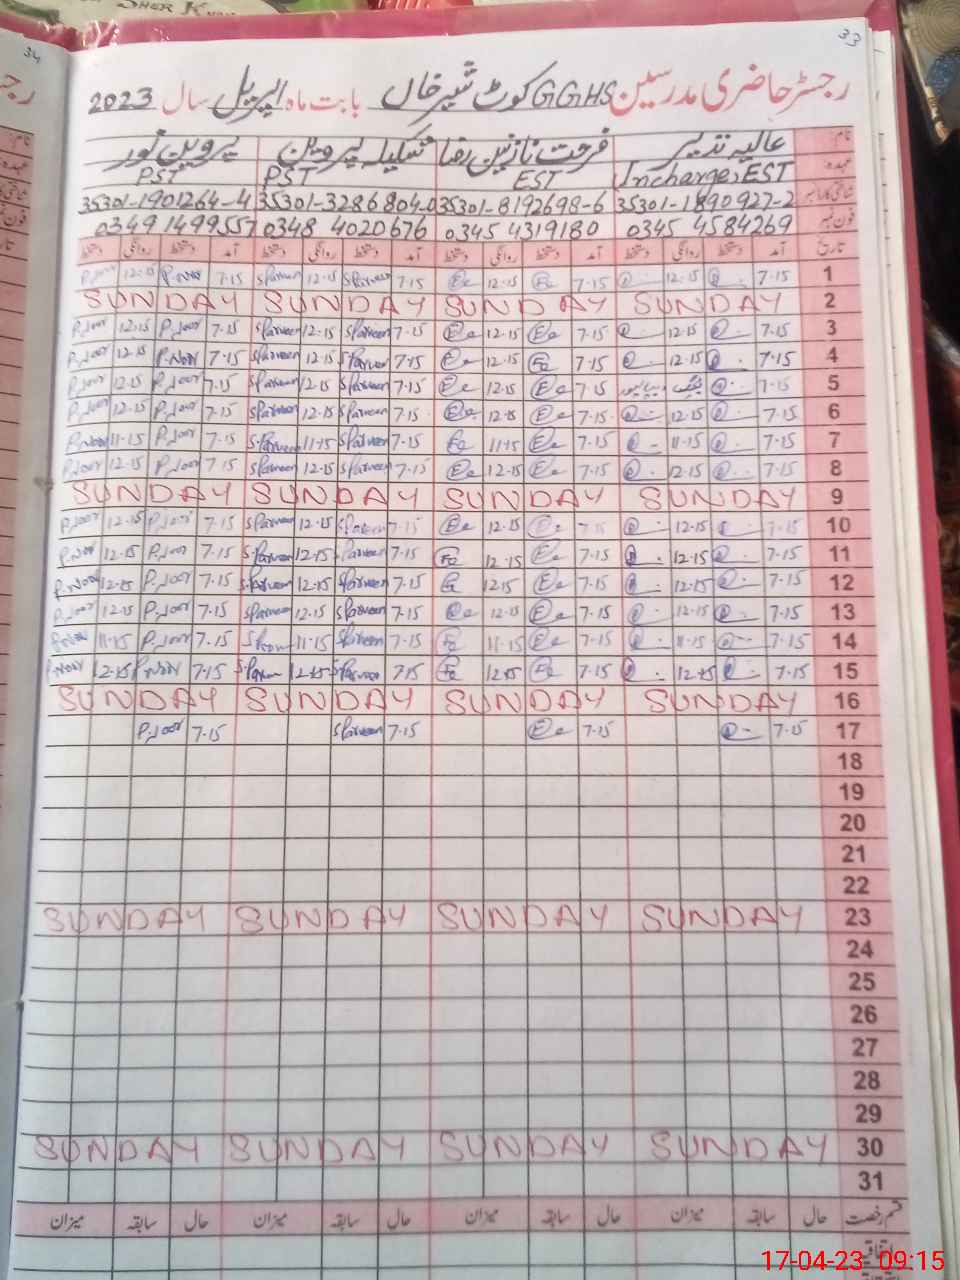 SHER K
34
33
رجسٹر حاضری مدرسین GGHS کوٹ شیر خاں بابت ماہ اپریل سال 2023
نام عالیہ نذیر فرحت نازنین رضا شکیلہ پروین پروین نور
عہدہ Incharge, EST EST PST PST
35301-1890927-2 35301-8192698-6 35301-3286804-0 35301-1901264-4
فون نمبر 0345 4584269 0345 4319180 0348 4020676 0349 1499557
تاریخ آمد دستخط روانگی دستخط آمد دستخط روانگی دستخط آمد دستخط روانگی دستخط آمد دستخط روانگی دستخط
1 7-15 12-15 7-15 12-15 7-15 SParveen 12-15 SParveen 7-15 P.Noor 12-15 P.Noor
2 SUNDAY SUNDAY SUNDAY SUNDAY
3 7-15 12-15 7-15 12-15 7-15 SParveen 12-15 SParveen 7-15 P.Noor 12-15 P.Noor
4 7-15 12-15 7-15 12-15 7-15 SParveen 12-15 SParveen 7-15 P.Noor 12-15 P.Noor
5 7-15 7-15 12-15 7-15 SParveen 12-15 SParveen 7-15 P.Noor 12-15 P.Noor
6 7-15 12-15 7-15 12-15 7-15 SParveen 12-15 SParveen 7-15 P.Noor 12-15 P.Noor
7 7-15 11-15 7-15 11-15 7-15 SParveen 11-15 S.Parveen 7-15 P.Noor 11-15 P.Noor
8 7-15 12-15 7-15 12-15 7-15 SParveen 12-15 SParveen 7-15 P.Noor 12-15 P.Noor
9 SUNDAY SUNDAY SUNDAY SUNDAY
10 7-15 12-15 7-15 12-15 7-15 SParveen 12-15 SParveen 7-15 P.Noor 12-15 P.Noor
11 7-15 12-15 7-15 12-15 7-15 SParveen 12-15 S.Parveen 7-15 P.Noor 12-15 P.Noor
12 7-15 12-15 7-15 12-15 7-15 SParveen 12-15 SParveen 7-15 P.Noor 12-15 P.Noor
13 7-15 12-15 7-15 12-15 7-15 SParveen 12-15 SParveen 7-15 P.Noor 12-15 P.Noor
14 7-15 11-15 7-15 11-15 7-15 SParveen 11-15 SParveen 7-15 P.Noor 11-15 P.Noor
15 7-15 12-15 7-15 12-15 7-15 SParveen 12-15 S.Parveen 7-15 P.Noor 12-15 P.Noor
16 SUNDAY SUNDAY SUNDAY SUNDAY
17 7-15 7-15 7-15 SParveen 7-15 P.Noor
18
19
20
21
22
23 SUNDAY SUNDAY SUNDAY SUNDAY
24
25
26
27
28
29
30 SUNDAY SUNDAY SUNDAY SUNDAY
31
قسم رخصت حال سابقہ میزان حال سابقہ میزان حال سابقہ میزان حال سابقہ میزان
اتفاقیہ
17-04-23 09:15